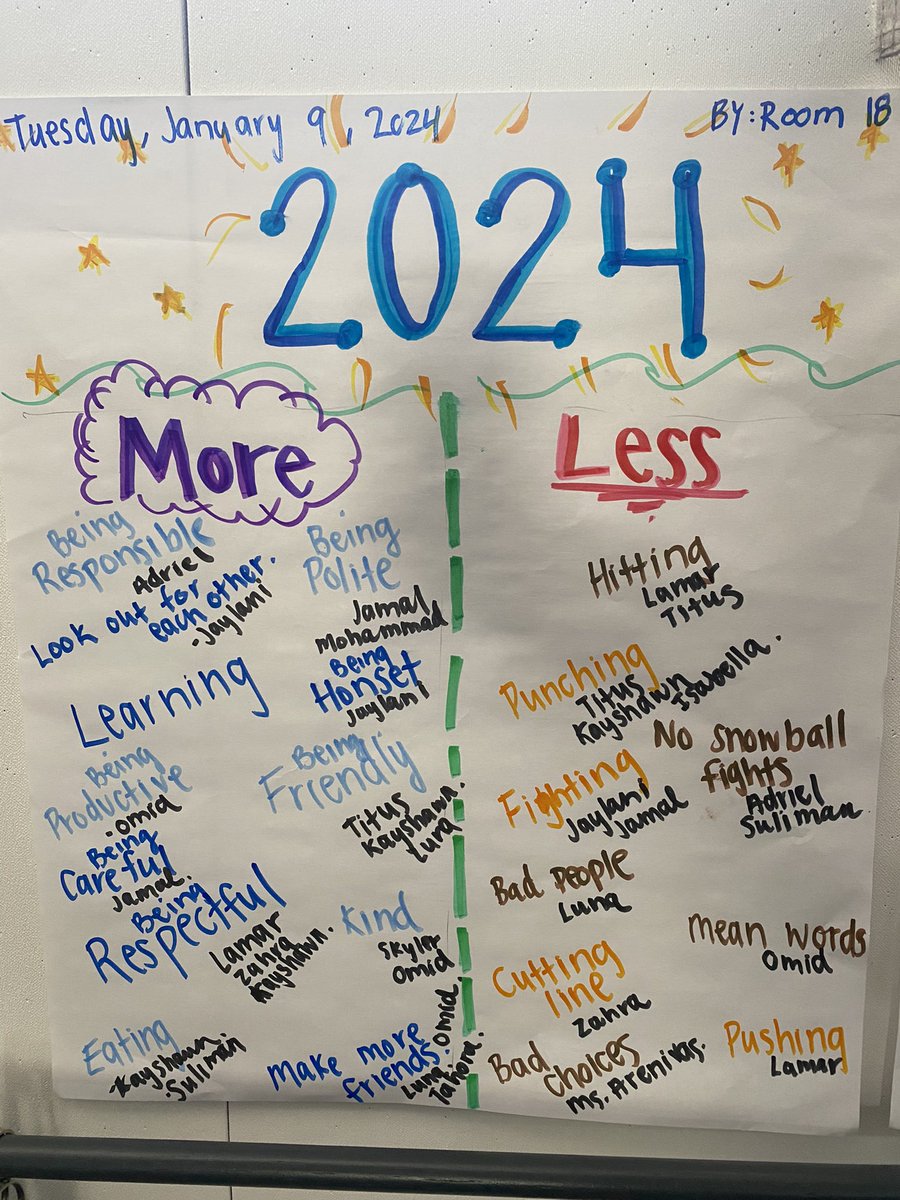 Tuesday, January 9, 2024
BY: Room 18
2024
More
Being
Responsible
Adriel
Look out for
each other.
- Jaylani
Learning
Being
Productive
. Omid
Being
Careful
Jamal.
Being
Respectful
Lamar
Zahra
Kayshawn.
Eating
Kayshawn
. Suliman
Being
Polite
Jamal
Mohammad
Being
Honset
Jaylani
Being
Friendly
Titus
Kayshawn.
Luna
Kind
Skyler
Omid
Make more
friends.
Luna
Omid
Tahora.
Less
Hitting
Lamar
Titus
Punching
Titus
Kayshawn
Isabella.
No snowball
fights
Adriel
Suliman
Fighting
Jaylani
Jamal
Bad People
Luna
Mean words
Omid
Cutting
line
Zahra
Bad
choices
Ms. Arenivas.
Pushing
Lamar